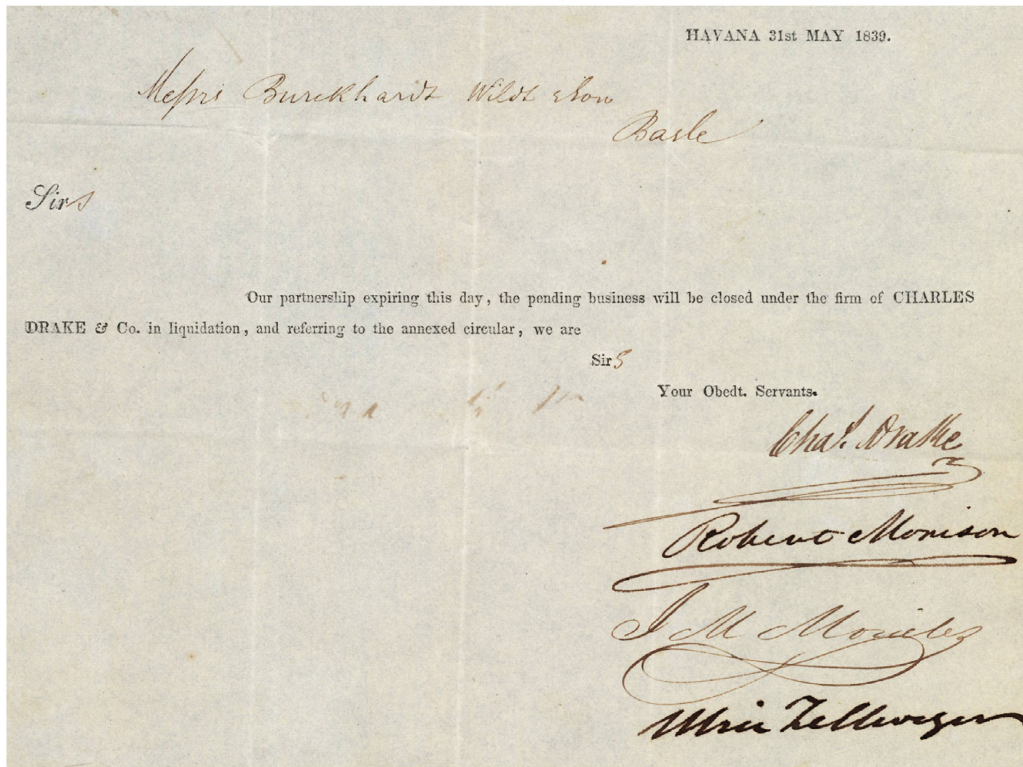 HAVANA 31st MAY 1839.
Messrs Burckhardt Wildt & Son
Basle
Sirs
Our partnership expiring this day, the pending business will be closed under the firm of CHARLES
DRAKE & Co. in liquidation, and referring to the annexed circular, we are
Sirs
Your Obedt. Servants.
Chas. Drake
Robert Morison
J M Morales
Ulric Zellweger